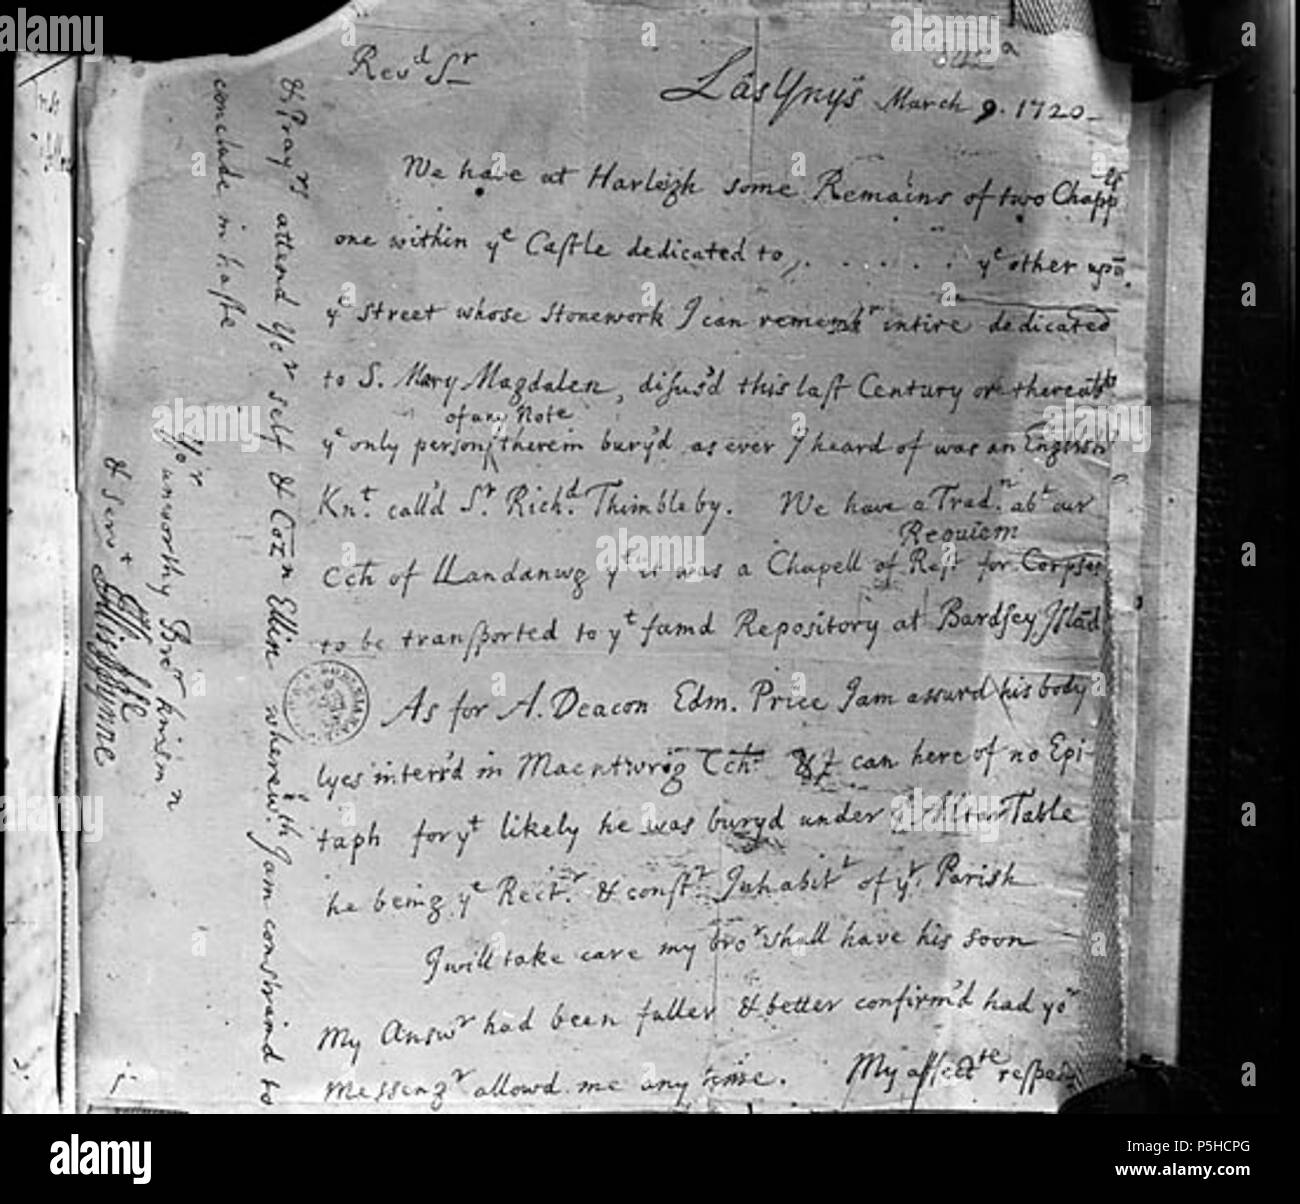 Revd Sr
Lâs Ynys March 9. 1720
We have at Harleigh some Remains of two Chappls
one within ye Castle dedicated to, . . . . . ye other upō
ye Street whose stonework I can remembr intire dedicated
to S. Mary Magdalen, disus'd this last Century or thereabts
of any Note
ye only person therein bury'd as ever I heard of was an English
Knt. call'd Sr. Richd. Thimbleby. We have a Tradn. abt our
Requiem
Cch of Llandanwg yt it was a Chapell of Rest for Corpses
to be transported to yt fam'd Repository at Bardsey Islād
As for A. Deacon Edm. Price I am assur'd his body
lyes interr'd in Maentwrog Cch. & I can here of no Epi-
taph for yt likely he was bury'd under ye Altar Table
he being ye Rectr. & constt. Inhabitt of yt. Parish
I will take care my bror shall have his soon
My Answr had been fuller & better confirm'd had yor
Messengr allowd me any time. My affectte respects
& Prayrs attend Yor self & Cozn Ellin wherewth I am constraind to
conclude in haste
Yor
unworthy Bror kinsmn
& Servt
Ellis Wynne
alamy
alamy
Image ID: P5HCPG
www.alamy.com